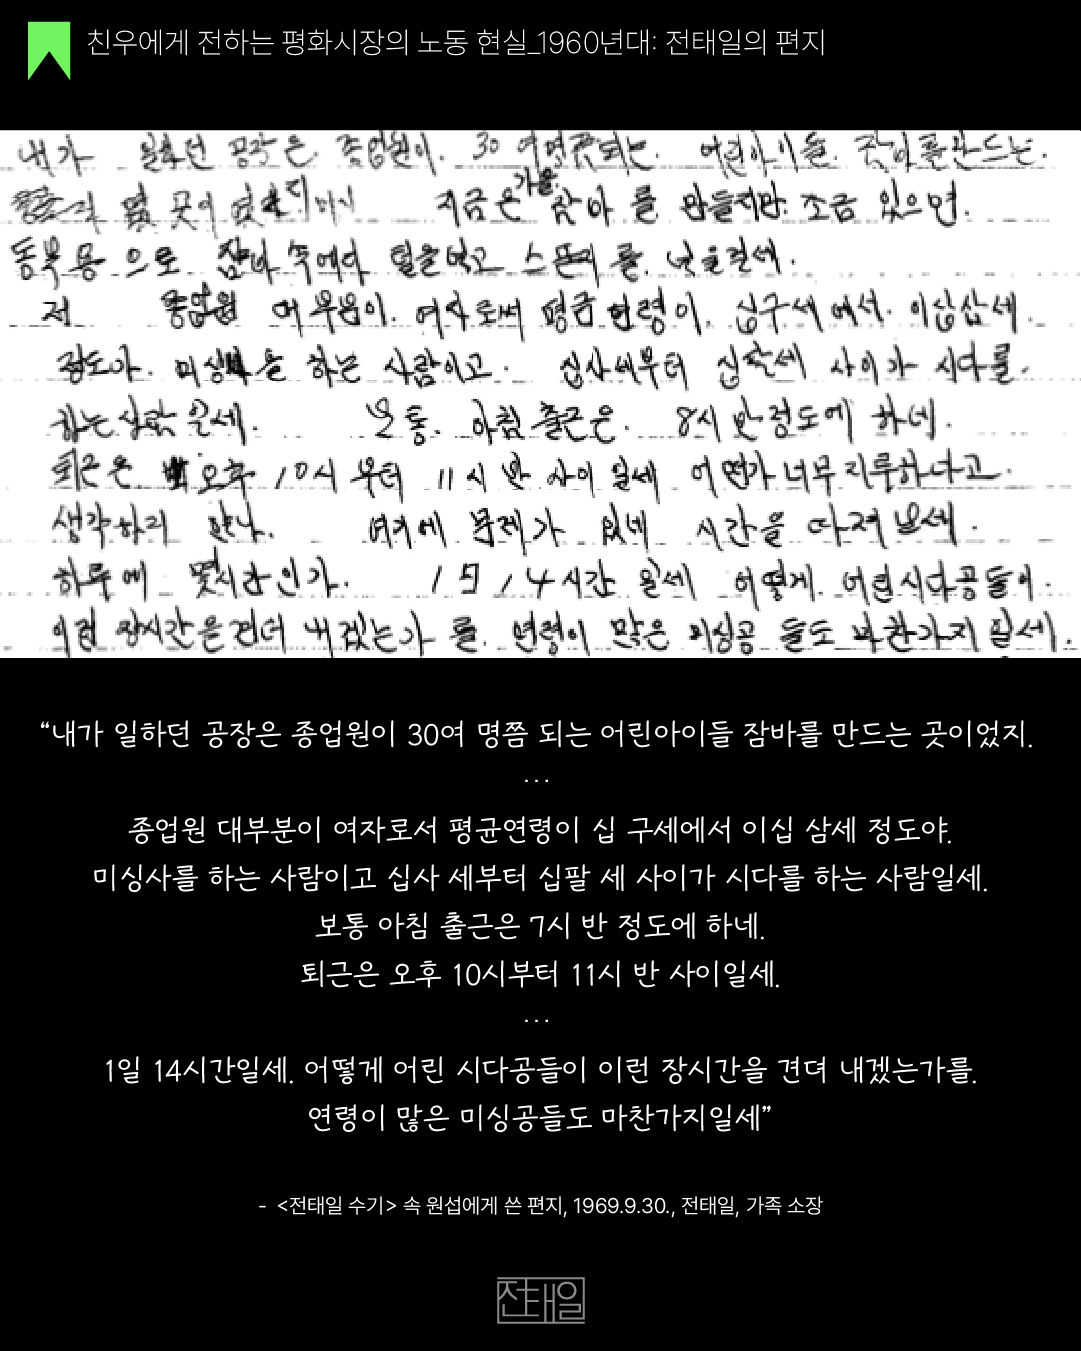 친우에게 전하는 평화시장의 노동 현실_1960년대: 전태일의 편지
내가 일하던 공장은 종업원이. 30여명쯤되는. 어린아이들. 잠바를만드는.
지금은 가을. 잠바 를 만들지만. 조금 있으면.
동복용 으로 잠바 속에다 털을넣고 스폰지를. 넣을걸세.
종업원 대부분이. 여자로써 평균연령이. 십구세에서. 이십삼세
정도가. 미싱사를 하는 사람이고. 십사세부터 십팔세 사이가 시다를.
하는사람일세. 보통. 아침 출근은. 8시 반정도에 하네.
퇴근은 오후 10시 부터 11시 반 사이 일세 어떤가 너무 지루하다고.
생각하지 않나. 여기에 문제가 있네 시간을 따져보세.
하루에 몇시간인가. 1일 14시간 일세 어떻게. 어린시다공들이.
이런 장시간을견뎌 내겠는가 를. 연령이 많은 미싱공 들도 마찬가지 일세.
“내가 일하던 공장은 종업원이 30여 명쯤 되는 어린아이들 잠바를 만드는 곳이었지.
...
종업원 대부분이 여자로서 평균연령이 십 구세에서 이십 삼세 정도야.
미싱사를 하는 사람이고 십사 세부터 십팔 세 사이가 시다를 하는 사람일세.
보통 아침 출근은 7시 반 정도에 하네.
퇴근은 오후 10시부터 11시 반 사이일세.
...
1일 14시간일세. 어떻게 어린 시다공들이 이런 장시간을 견뎌 내겠는가를.
연령이 많은 미싱공들도 마찬가지일세”
- <전태일 수기> 속 원섭에게 쓴 편지, 1969.9.30., 전태일, 가족 소장
전태일